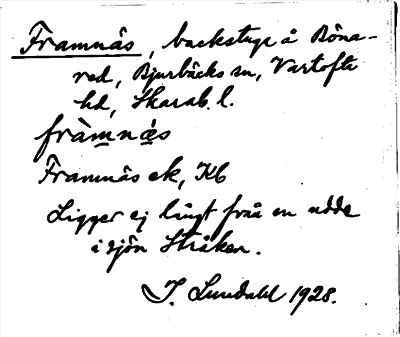 Framnäs, backstuga å Böna-
red, Bjurbäcks sn, Vartofta
hd, Skarab. l.
fràmnä́s
Framnäs ek, Kb
Ligger ej långt från en udde
i sjön Stråken.
J. Lundahl 1928.